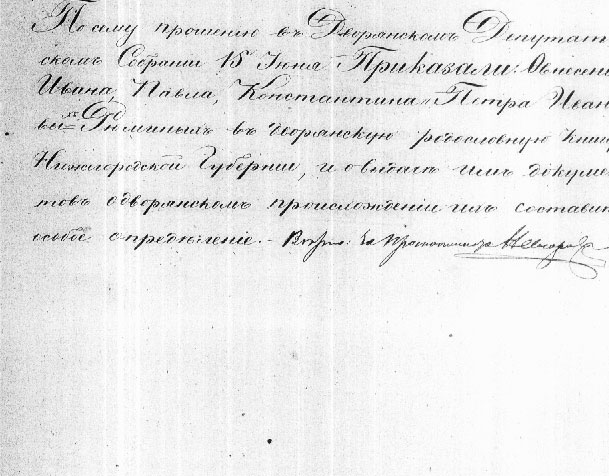 По сему прошению въ Дворянскомъ Депутат
скомъ Собрании 15 Iюня Приказали: О внесенi
Ивана, Павла, Константина и Петра Иван
выхъ Рюминыхъ въ дворянскую родословную книгу
Нижегородской Губернии, и о выдаче имъ докумен
товъ о дворянскомъ происхождении ихъ состави
особое определение.-